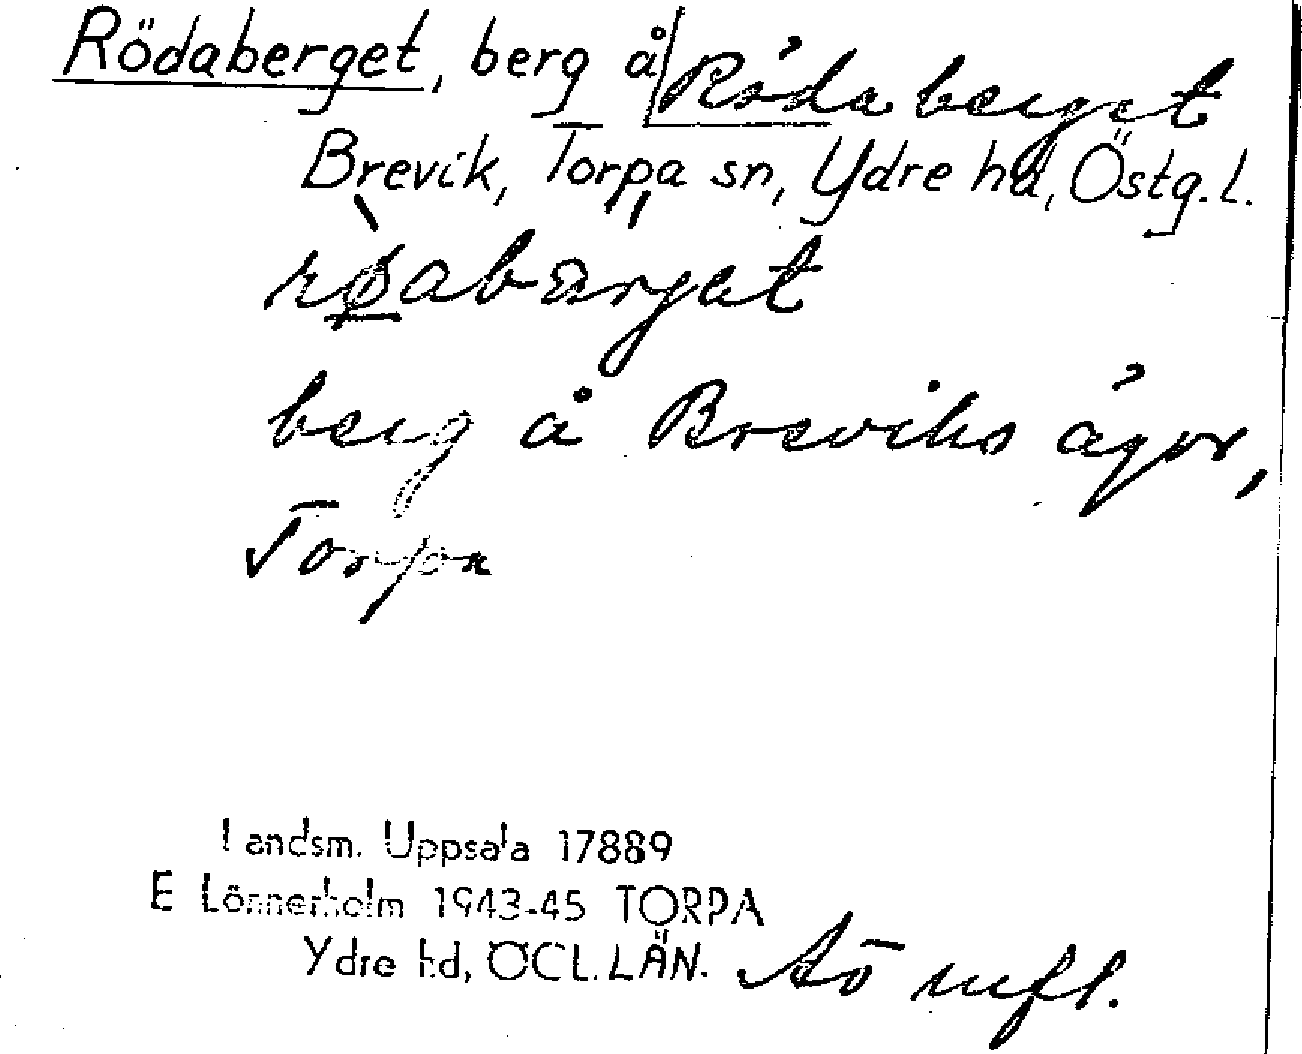 Rödaberget, berg å Röda berget
Brevik, Torpa sn, Ydre hd, Östg. l.
røabärjat
berg å Breviks ägor,
Torpa
Landsm. Uppsala 17889
E Lönnerholm 1943-45 TORPA
Ydre hd, ÖGL. LÄN. Aö mfl.